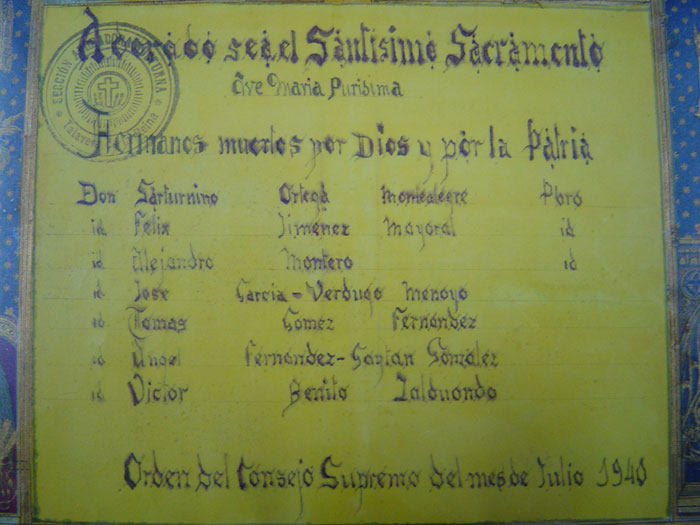 Adorado sea el Santisimo Sacramento
Ave Maria Purisima
Hermanos muertos por Dios y por la Patria
Don Sarturnino Ortega Montealegre Pbro
id Felix Jimenez Mayoral id
id Alejandro Montero id
id Jose Garcia=Verdugo Menoyo
id Tomas Gomez Fernandez
id Angel Fernandez-Gaytan Gonzalez
id Victor Benito Zalduondo
Orden del Consejo Supremo del mes de Julio 1940
SECCIÓN ADORADORA NOCTURNA
Talavera Reina